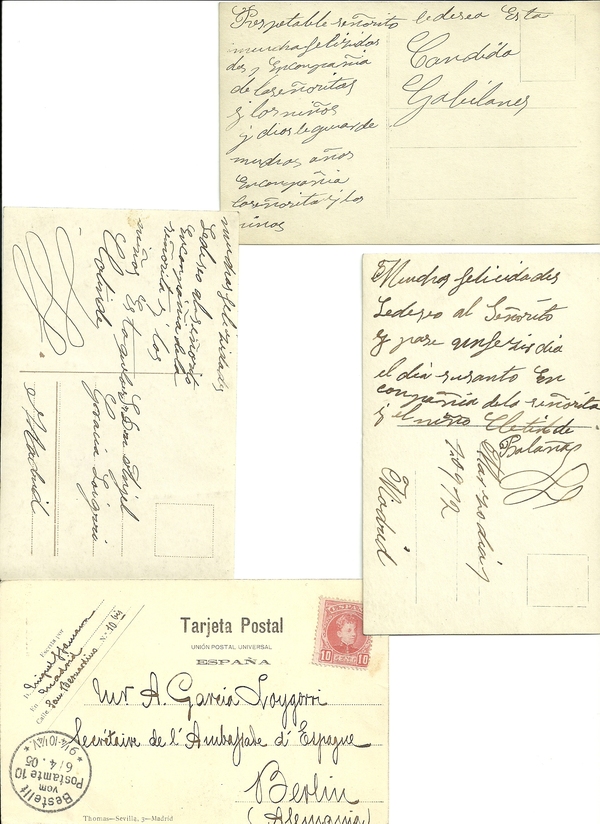 Respetable señorito le desea Esta
muncha felizidos
des y Enconpañia
de laseñoritas
y los niños
y dios le guarde
muchos años
Enconpañia
laseñorita y los
ninos
Candida
Gabilanes
munchas felizidades
Ledeseo al señorito
Enconpañia dela
señorita y los
niños Esta
Clotinde
Sr Don Angel
Garcia Loigorri
Madrid
Munchas felicidades
Ledeseo al Señorito
y pase unfeliz dia
el dia susanto En
conpañia dela señorita
y el niño Cletilde
Bolaños
Marzo dia 1
1912
Madrid
Tarjeta Postal
UNIÓN POSTAL UNIVERSAL
ESPAÑA
ESPAÑA
10 10
Escrita por
D. Miguel
En Madrid
Calle San Bernardino N.º 10 bis
Mr A. García Loygorri
Secrétaire de l'Ambassade d'Espagne
Berlin
(Alemania)
Bestellt
vom
Postamte 10
6/4.05
9¼-10¼V.
Thomas—Sevilla, 3—Madrid